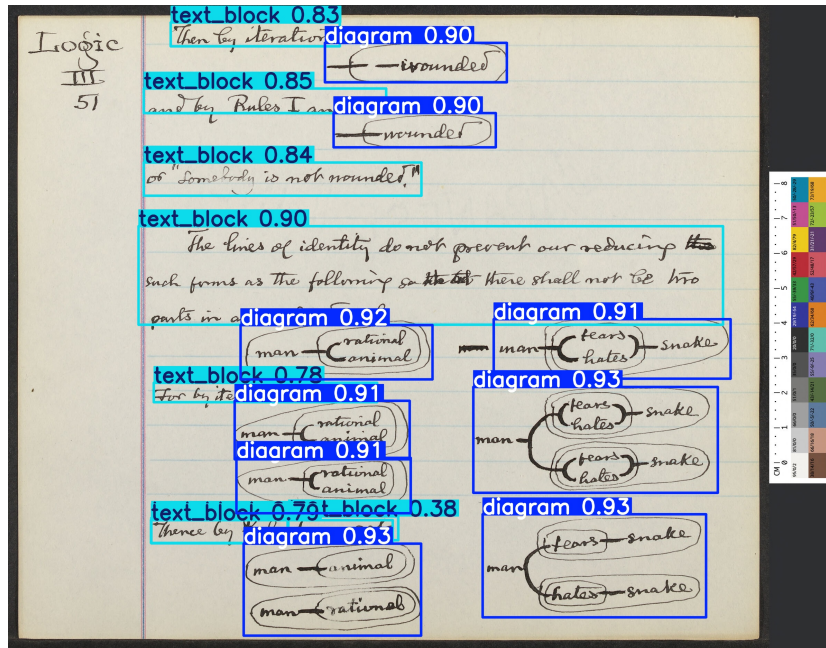 text_block 0.83
Logic
III
51
Then by iteration
diagram 0.90
wounded
text_block 0.85
and by Rules I an
diagram 0.90
wounded
text_block 0.84
or "Somebody is not wounded."
text_block 0.90
The lines of identity do not prevent our reducing
such forms as the following so there shall not be two
parts in a
diagram 0.92
man rational
animal
diagram 0.91
man fears snake
hates
text_block 0.78
For by ite
diagram 0.91
man rational
animal
diagram 0.91
man rational
animal
diagram 0.93
man
fears snake
hates
fears snake
hates
text_block 0.79
text_block 0.38
Thence by
diagram 0.93
man animal
man rational
diagram 0.93
man
fears snake
hates snake
CM 0 1 2 3 4 5 6 7 8